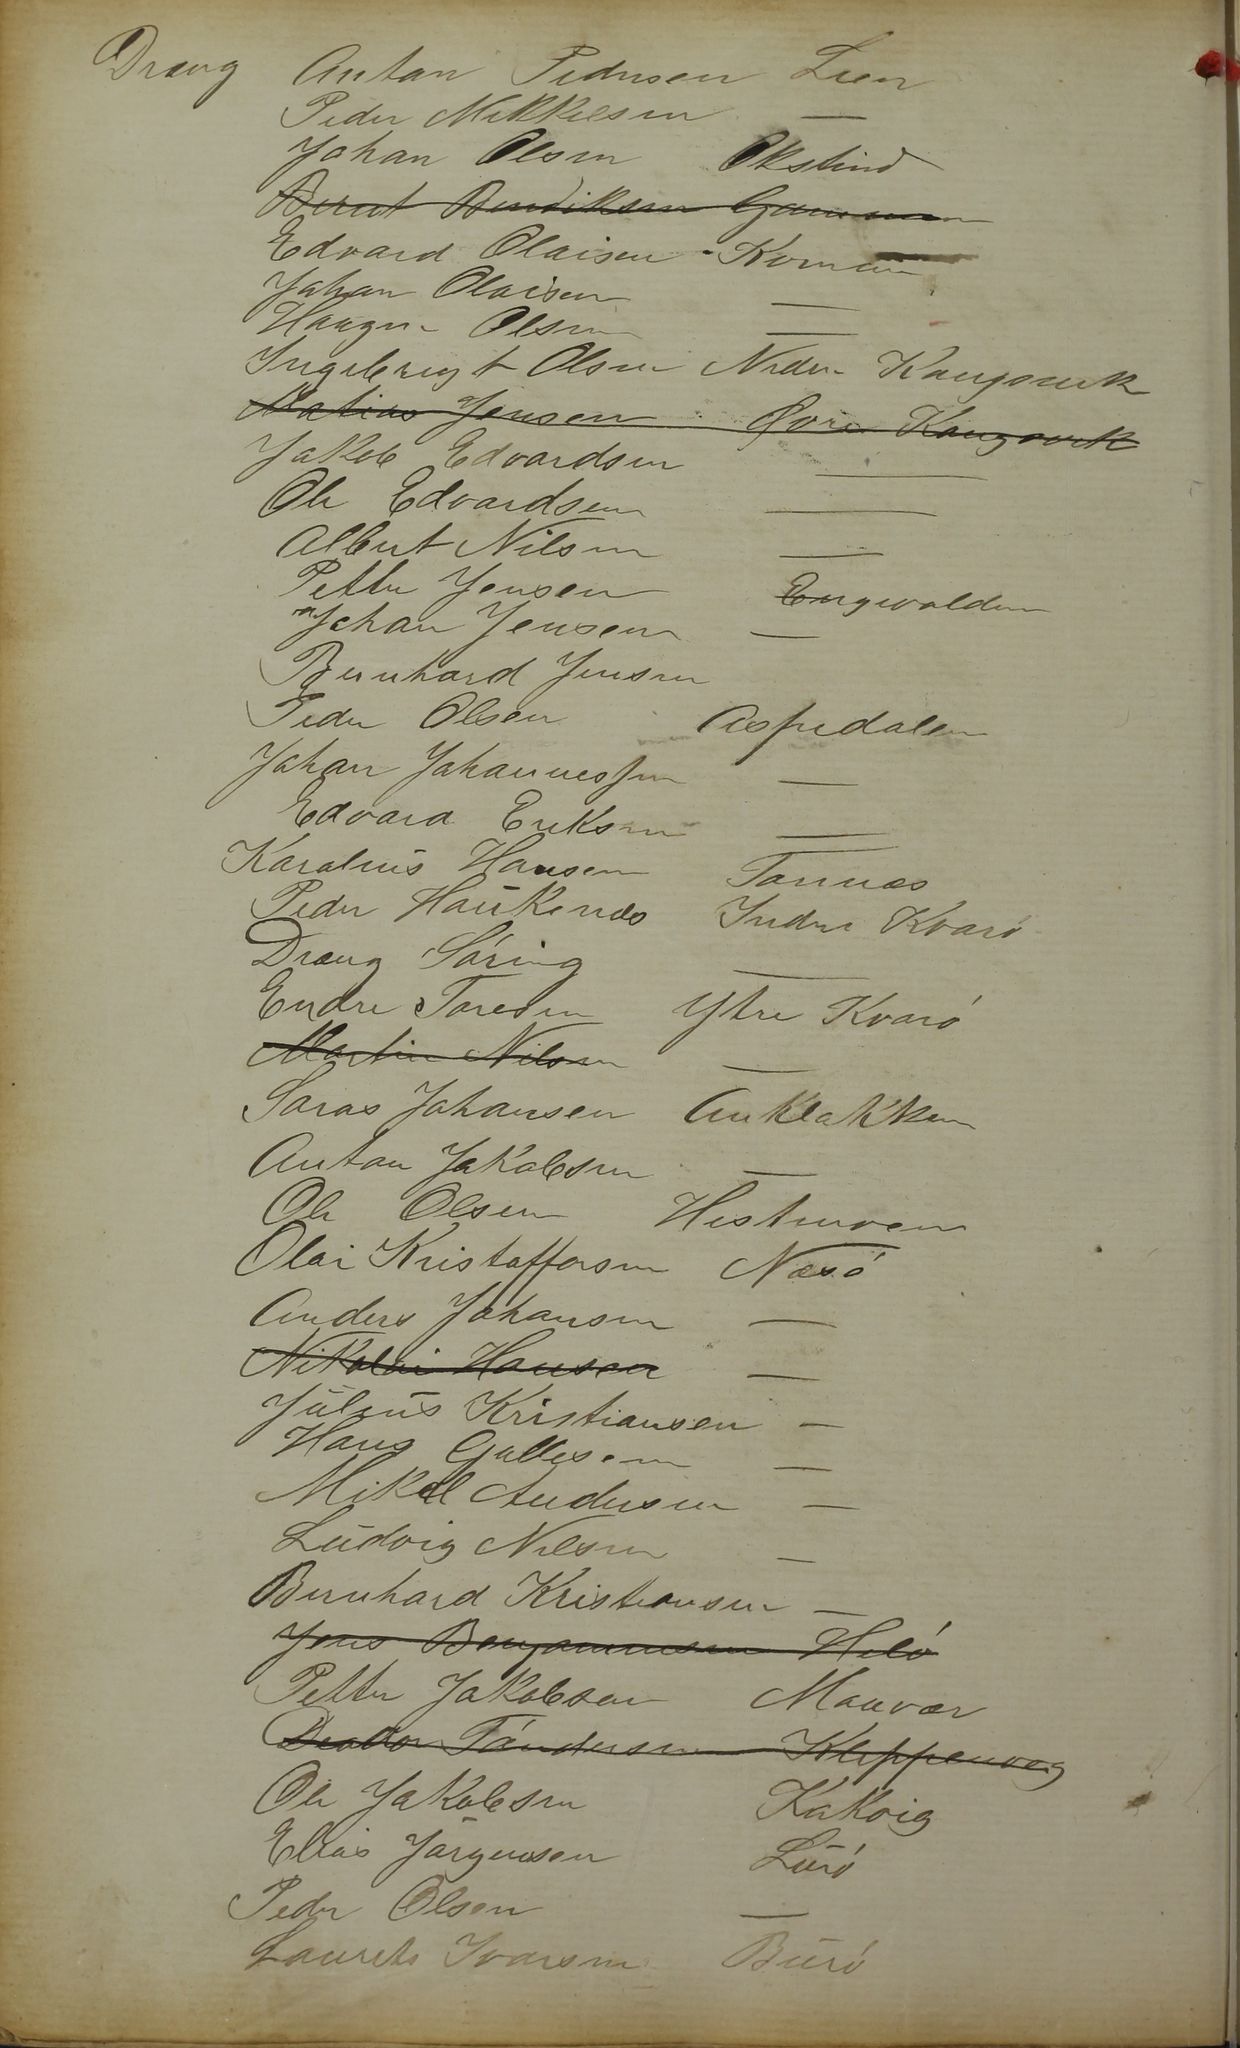 Dreng Anton Pedersen Lien
Peder Mikkelsen —
Johan Olsen Okstind
Bernt Bendiksen
Edvard Olaisen Kornan
Johan Olaisen —
Haagen Olsen —
Ingebregt Olsen Nedre Kangsvik
Matias Jensen Øvre Kangsvik
Jakob Edvardsen —
Ole Edvardsen —
Albert Nilsen —
Petter Jensen Engvolden
Johan Jensen —
Bernhard Jensen
Peder Olsen Aspedalen
Johan Johannessen —
Edvard Eriksen —
Karolius Hansen Tonnes
Peder Haukenes Indre Kvarö
Dreng Söring —
Endre Toresen Ytre Kvarö
Martin Nilsen —
Johansen Anklakken
Anton Jakobsen —
Ole Olsen Hestneven
Olai Kristoffersen Næsö
Anders Johansen —
Nikolai Hansen —
Julius Kristiansen —
Hans —
Mikal Andersen —
Ludvig Nilsen —
Bernhard Kristiansen —
Jens Benjaminsen Helö
Petter Jakobsen Mauvær
Töndersen Kleppenvaag
Ole Jakobsen Kakvig
Elias Jörgensen Lurö
Peder Olsen —
Laurits Ivarsen Burö